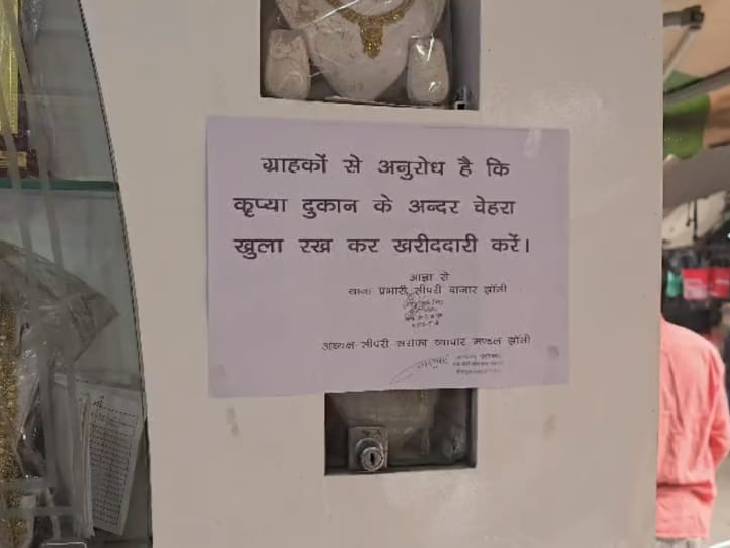 ग्राहकों से अनुरोध है कि
कृप्या दुकान के अन्दर चेहरा
खुला रख कर खरीददारी करें।
आज्ञा से
थाना प्रभारी सीपरी बाजार झाँसी
अध्यक्ष सीपरी सराफा व्यापार मण्डल झाँसी